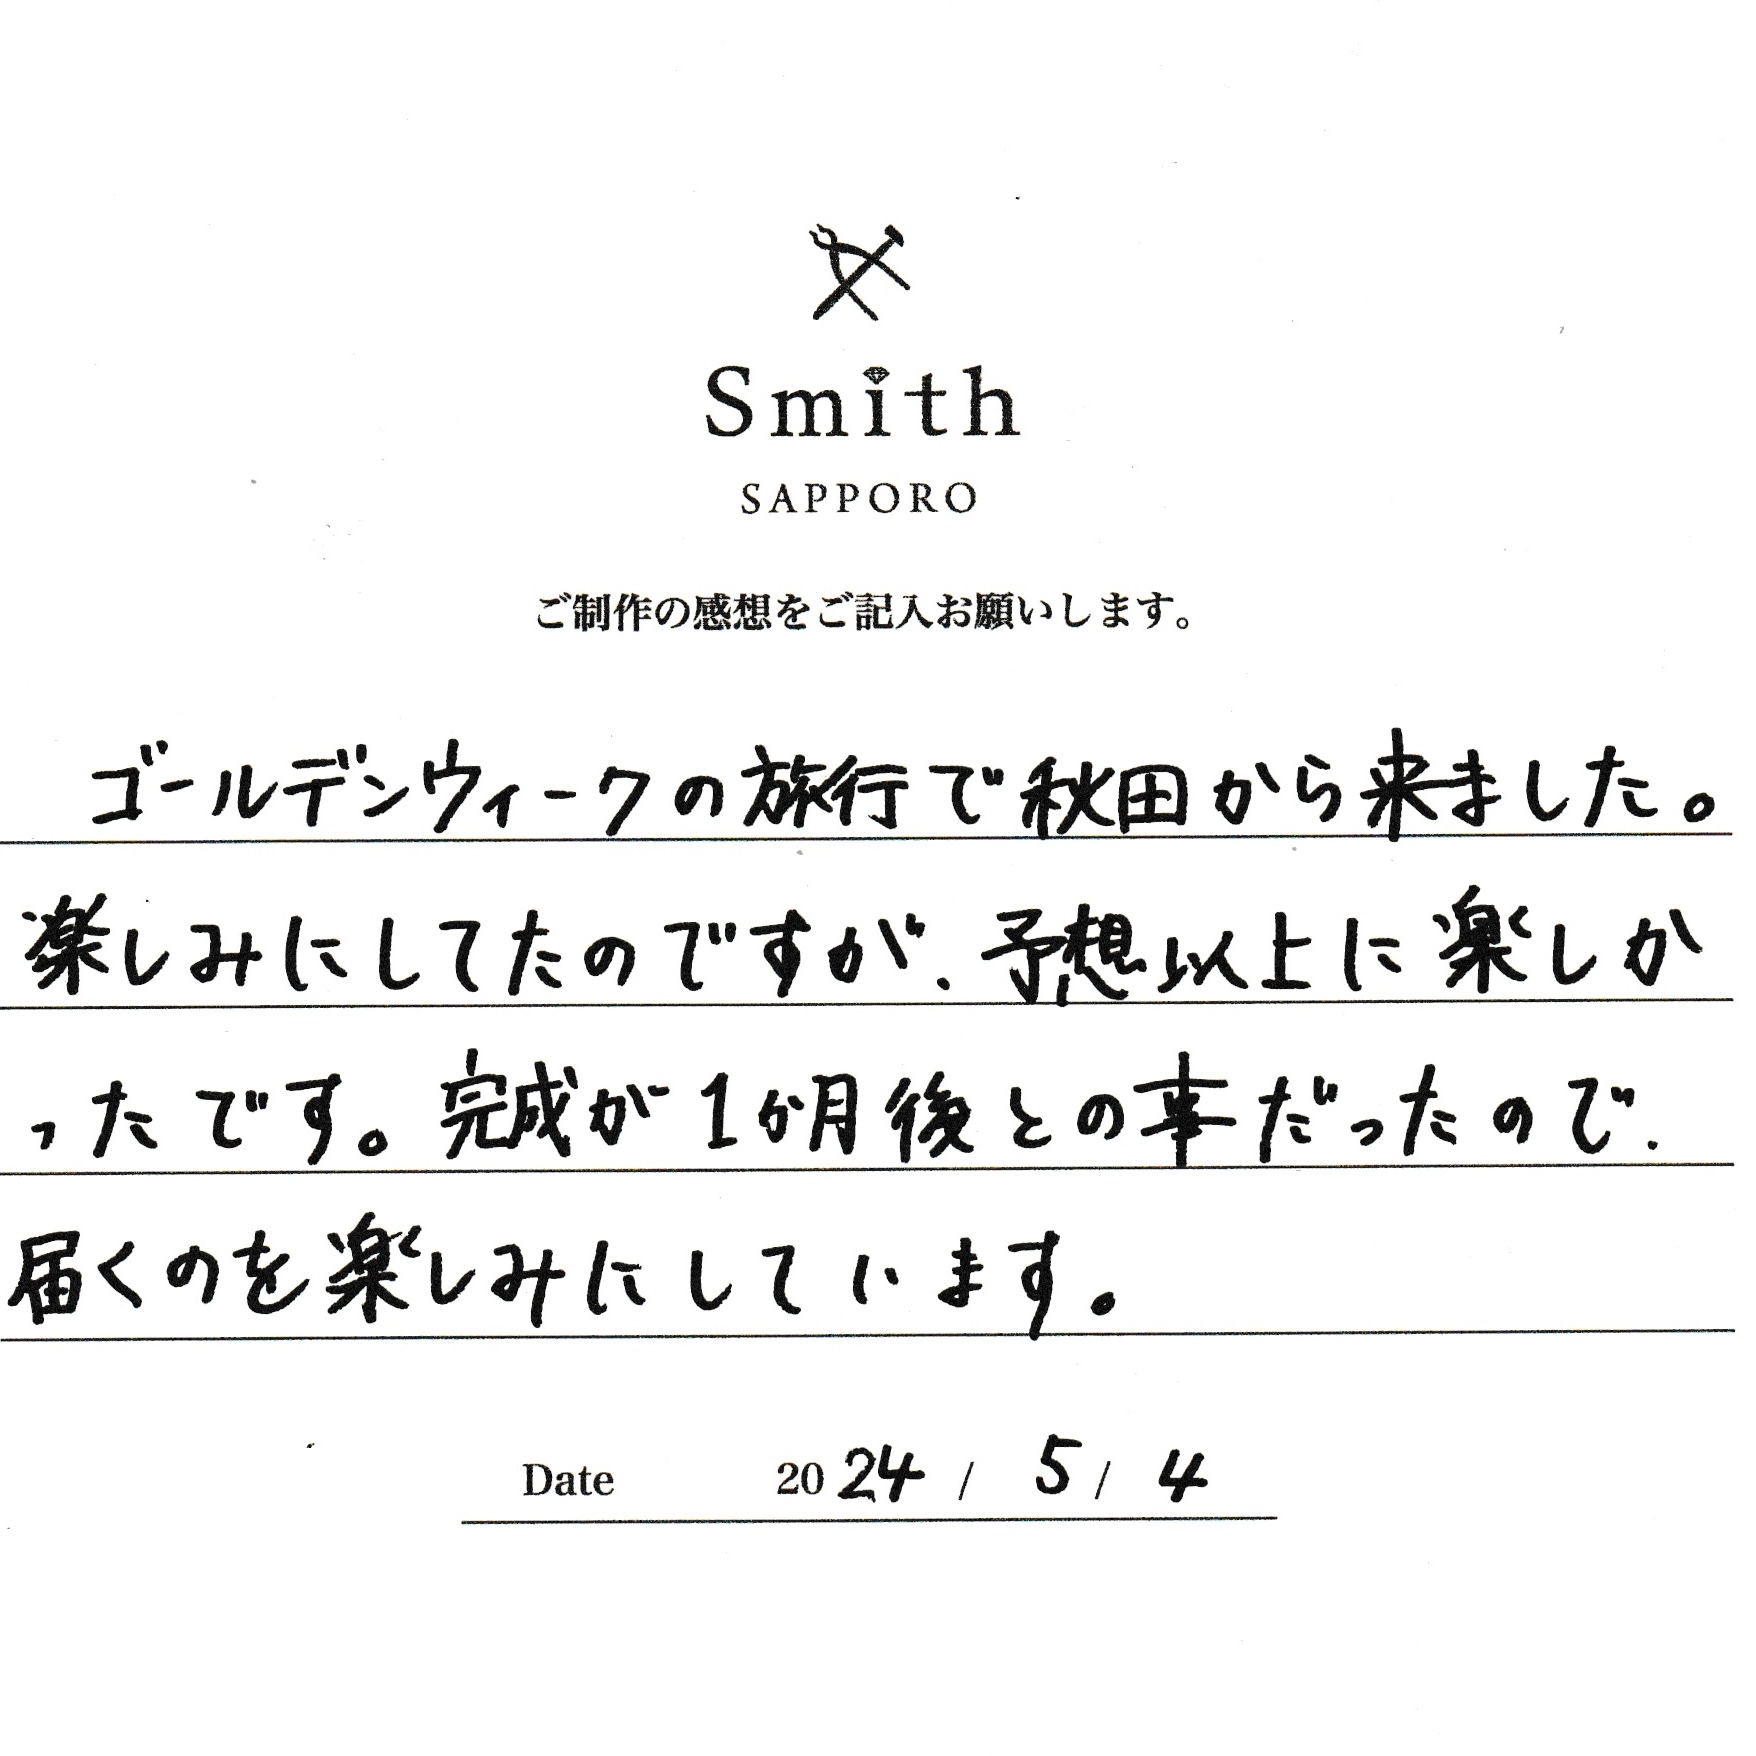 Smith
SAPPORO
ご制作の感想をご記入お願いします。
ゴールデンウィークの旅行で秋田から来ました。
楽しみにしてたのですが、予想以上に楽しか
ったです。完成が1か月後との事だったので、
届くのを楽しみにしています。
Date 2024 / 5 / 4